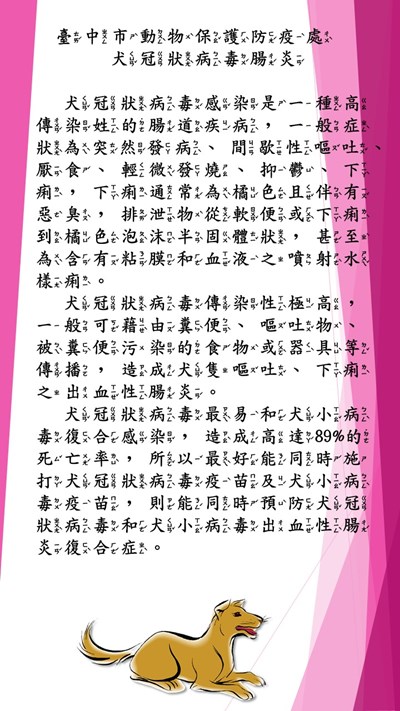 臺中市動物保護防疫處
犬冠狀病毒腸炎
犬冠狀病毒感染是一種高
傳染姓的腸道疾病，一般症
狀為突然發病、間歇性嘔吐、
厭食、輕微發燒、抑鬱、下
痢，下痢通常為橘色且伴有
惡臭，排泄物從軟便或下痢
到橘色泡沫半固體狀，甚至
為含有粘膜和血液之噴射水
樣痢。
犬冠狀病毒傳染性極高，
一般可藉由糞便、嘔吐物、
被糞便污染的食物或器具等
傳播，造成犬隻嘔吐、下痢
之出血性腸炎。
犬冠狀病毒最易和犬小病
毒復合感染，造成高達89%的
死亡率，所以最好能同時施
打犬冠狀病毒疫苗及犬小病
毒疫苗，則能同時預防犬冠
狀病毒和犬小病毒出血性腸
炎復合症。